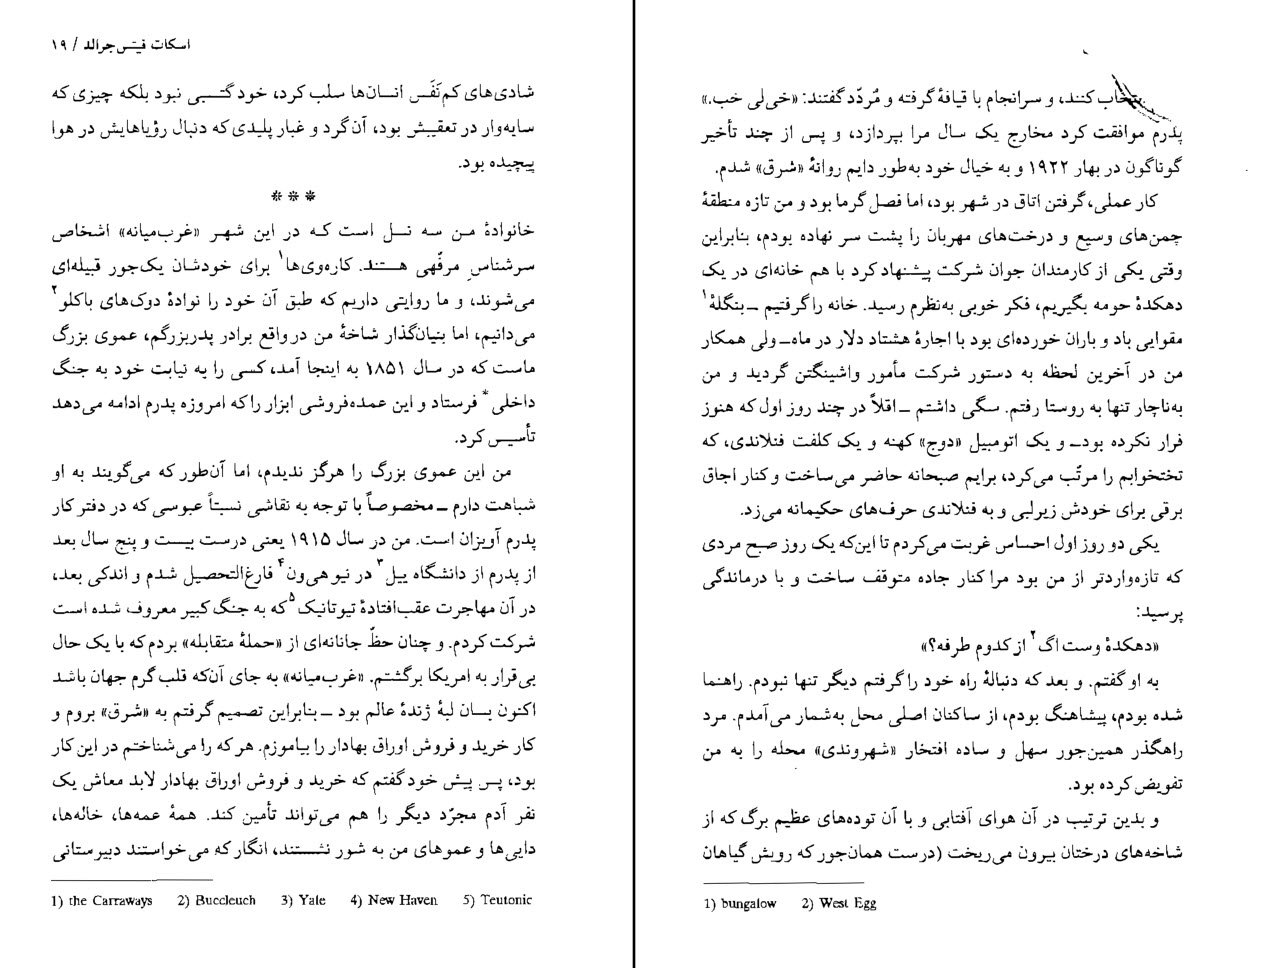 اسکات فیتس‌جرالد / ۱۹
شادی‌های کم‌نَفَس انسان‌ها سلب کرد، خود گتسبی نبود بلکه چیزی که
سایه‌وار در تعقیبش بود، آن گرد و غبار پلیدی که دنبال رؤیاهایش در هوا
پیچیده بود.
* * *
خانوادهٔ من سه نسل است که در این شهر «غرب‌میانه» اشخاص
سرشناس مرفّهی هستند. کاره‌وی‌ها۱ برای خودشان یک‌جور قبیله‌ای
می‌شوند، و ما روایتی داریم که طبق آن خود را نوادهٔ دوک‌های باکلو۲
می‌دانیم، اما بنیان‌گذار شاخهٔ من درواقع برادر پدربزرگم، عموی بزرگ
ماست که در سال ۱۸۵۱ به اینجا آمد، کسی را به نیابت خود به جنگ
داخلی* فرستاد و این عمده‌فروشی ابزار را که امروزه پدرم ادامه می‌دهد
تأسیس کرد.
من این عموی بزرگ را هرگز ندیدم، اما آن‌طور که می‌گویند به او
شباهت دارم ـ مخصوصاً با توجه به نقاشی نسبتاً عبوسی که در دفتر کار
پدرم آویزان است. من در سال ۱۹۱۵ یعنی درست بیست و پنج سال بعد
از پدرم از دانشگاه ییل۳ در نیو هی‌ون۴ فارغ‌التحصیل شدم و اندکی بعد،
در آن مهاجرت عقب‌افتادهٔ تیوتانیک۵ که به جنگ کبیر معروف شده است
شرکت کردم. و چنان حظّ جانانه‌ای از «حملهٔ متقابله» بردم که با یک حال
بی‌قرار به امریکا برگشتم. «غرب‌میانه» به جای آن‌که قلب گرم جهان باشد
اکنون بسان لبهٔ ژندهٔ عالم بود ـ بنابراین تصمیم گرفتم به «شرق» بروم و
کار خرید و فروش اوراق بهادار را بیاموزم. هر که را می‌شناختم در این کار
بود، پس پیش خود گفتم که خرید و فروش اوراق بهادار لابد معاش یک
نفر آدم مجرّد دیگر را هم می‌تواند تأمین کند. همهٔ عمه‌ها، خاله‌ها،
دایی‌ها و عموهای من به شور نشستند، انگار که می‌خواستند دبیرستانی
1) the Carraways 2) Buccleuch 3) Yale 4) New Haven 5) Teutonic
انتخاب کنند، و سرانجام با قیافهٔ گرفته و مُردّد گفتند: «خی‌لی خب.»
پدرم موافقت کرد مخارج یک سال مرا بپردازد، و پس از چند تأخیر
گوناگون در بهار ۱۹۲۲ و به خیال خود به‌طور دایم روانهٔ «شرق» شدم.
کار عملی، گرفتن اتاق در شهر بود، اما فصل گرما بود و من تازه منطقهٔ
چمن‌های وسیع و درخت‌های مهربان را پشت سر نهاده بودم، بنابراین
وقتی یکی از کارمندان جوان شرکت پیشنهاد کرد با هم خانه‌ای در یک
دهکدهٔ حومه بگیریم، فکر خوبی به‌نظرم رسید. خانه را گرفتیم ـ بنگلهٔ۱
مقوایی باد و باران خورده‌ای بود با اجارهٔ هشتاد دلار در ماه ـ ولی همکار
من در آخرین لحظه به دستور شرکت مأمور واشینگتن گردید و من
به‌ناچار تنها به روستا رفتم. سگی داشتم ـ اقلاً در چند روز اول که هنوز
فرار نکرده بود ـ و یک اتومبیل «دوج» کهنه و یک کلفت فنلاندی، که
تختخوابم را مرتّب می‌کرد، برایم صبحانه حاضر می‌ساخت و کنار اجاق
برقی برای خودش زیرلبی و به فنلاندی حرف‌های حکیمانه می‌زد.
یکی دو روز اول احساس غربت می‌کردم تا این‌که یک روز صبح مردی
که تازه‌واردتر از من بود مرا کنار جاده متوقف ساخت و با درماندگی
پرسید:
«دهکدهٔ وست اگ۲ از کدوم طرفه؟»
به او گفتم. و بعد که دنبالهٔ راه خود را گرفتم دیگر تنها نبودم. راهنما
شده بودم، پیشاهنگ بودم، از ساکنان اصلی محل به‌شمار می‌آمدم. مرد
راهگذر همین‌جور سهل و ساده افتخار «شهروندی» محله را به من
تفویض کرده بود.
و بدین ترتیب در آن هوای آفتابی و با آن توده‌های عظیم برگ که از
شاخه‌های درختان بیرون می‌ریخت (درست همان‌جور که رویش گیاهان
1) bungalow 2) West Egg